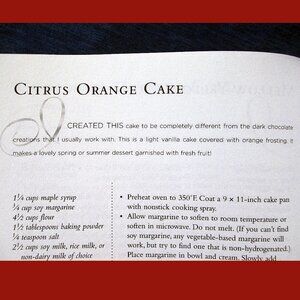 CITRUS ORANGE CAKE
CREATED THIS cake to be completely different from the dark chocolate
creations that I usually work with. This is a light vanilla cake covered with orange frosting. It
makes a lovely spring or summer dessert garnished with fresh fruit!
1¼ cups maple syrup
cup soy margarine
4½ cups flour
1½ tablespoons baking powder
¼ teaspoon salt
2½ cups soy milk, rice milk, or
non-dairy milk of choice
• Preheat oven to 350°F. Coat a 9 × 11-inch cake pan
with nonstick cooking spray.
• Allow margarine to soften to room temperature or
soften in microwave. Do not melt. (If you can't find
soy margarine, any vegetable-based margarine will
work, but try to find one that is non-hydrogenated.)
Place margarine in bowl and cream. Slowly add